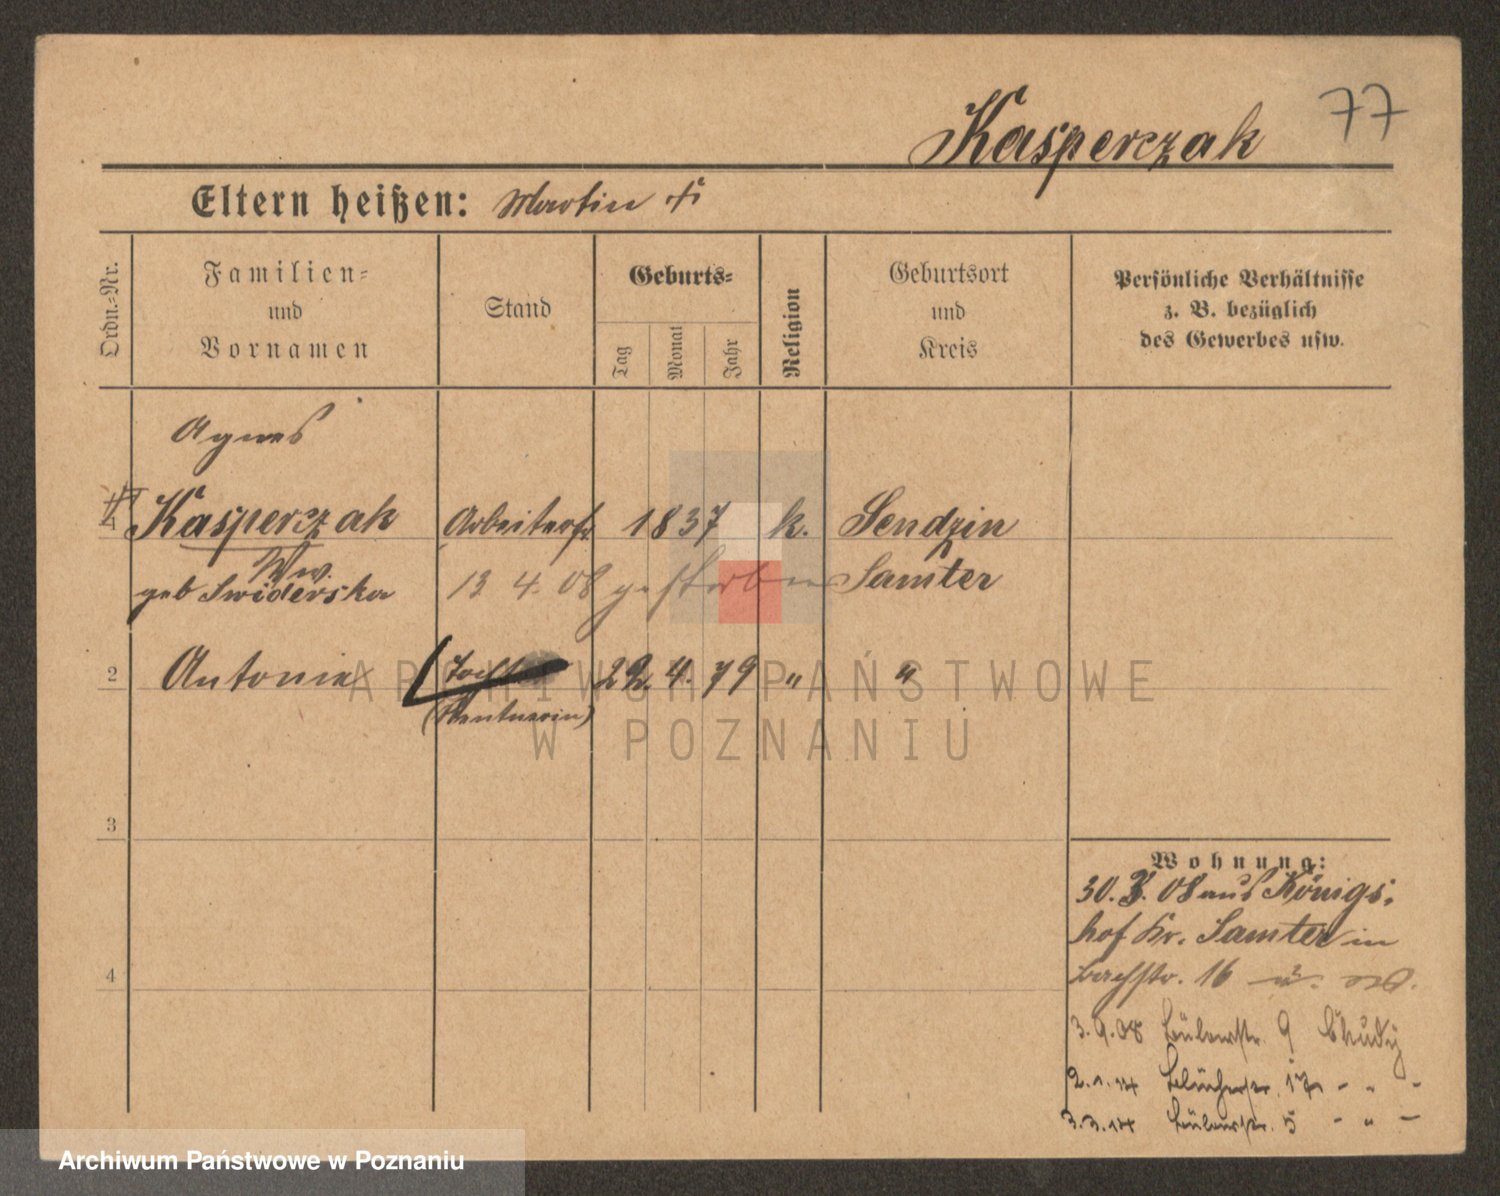 77
Kasperczak
Eltern heißen: Martin †
Ordn.=Nr.
Familien=
und
Vornamen
Stand
Geburts=
Tag
Monat
Jahr
Religion
Geburtsort
und
Kreis
Persönliche Verhältnisse
z. B. bezüglich
des Gewerbes usw.
Agnes
1 Kasperczak Arbeiterfr 1837 k. Sendzin
Ww.
geb Swiderska 13 4. 08 gestorben Samter
2 Antonie Tochter 22. 4. 79 " "
(Rentnerin)
3
4
Wohnung:
30. 3. 08 aus Königs-
hof Kr. Samter in
Bachstr. 16
3.9.08 Bülowstr. 9
2.1.14 Blücherstr. 17 - " -
3.3.14 Bülowstr. 5 - " -
ARCHIWUM PAŃSTWOWE
W POZNANIU
Archiwum Państwowe w Poznaniu